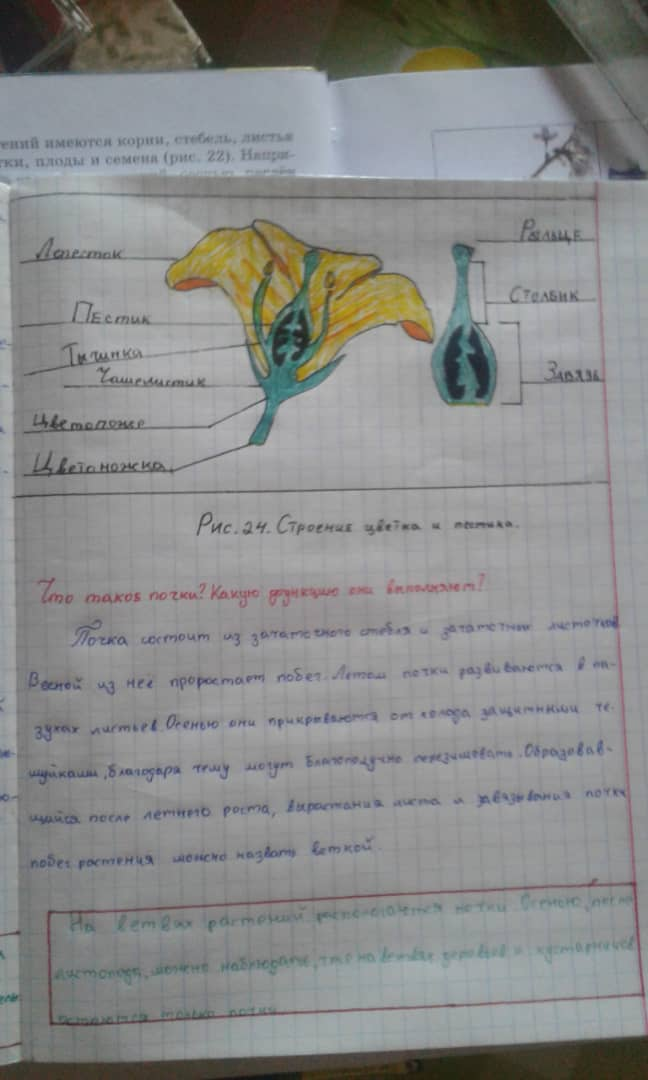 ений имеются корни, стебель, листья
тки, плоды и семена (рис. 22). Напри-
Лепесток
Пестик
Тычинка
Чашелистик
Цветоложе
Цветоножка
Рыльце
Столбик
Завязь
Рис. 24. Строение цветка и пестика.
Что такое почки? Какую функцию они выполняют?
Почка состоит из зачаточного стебля и зачаточных листочков.
Весной из неё проростает побег. Летом почки развиваются в па-
зухах листьев. Осенью они прикрываются от холода защитными че-
шуйками, благодаря чему могут благополучно перезимовать. Образовав-
шийся после летнего роста, вырастания листа и завязывания почки
побег растения можно назвать веткой.
На ветвях растений располагаются почки. Осенью, после
листопада, можно наблюдать, что на ветвях деревьев и кустарников
остаются только почки.